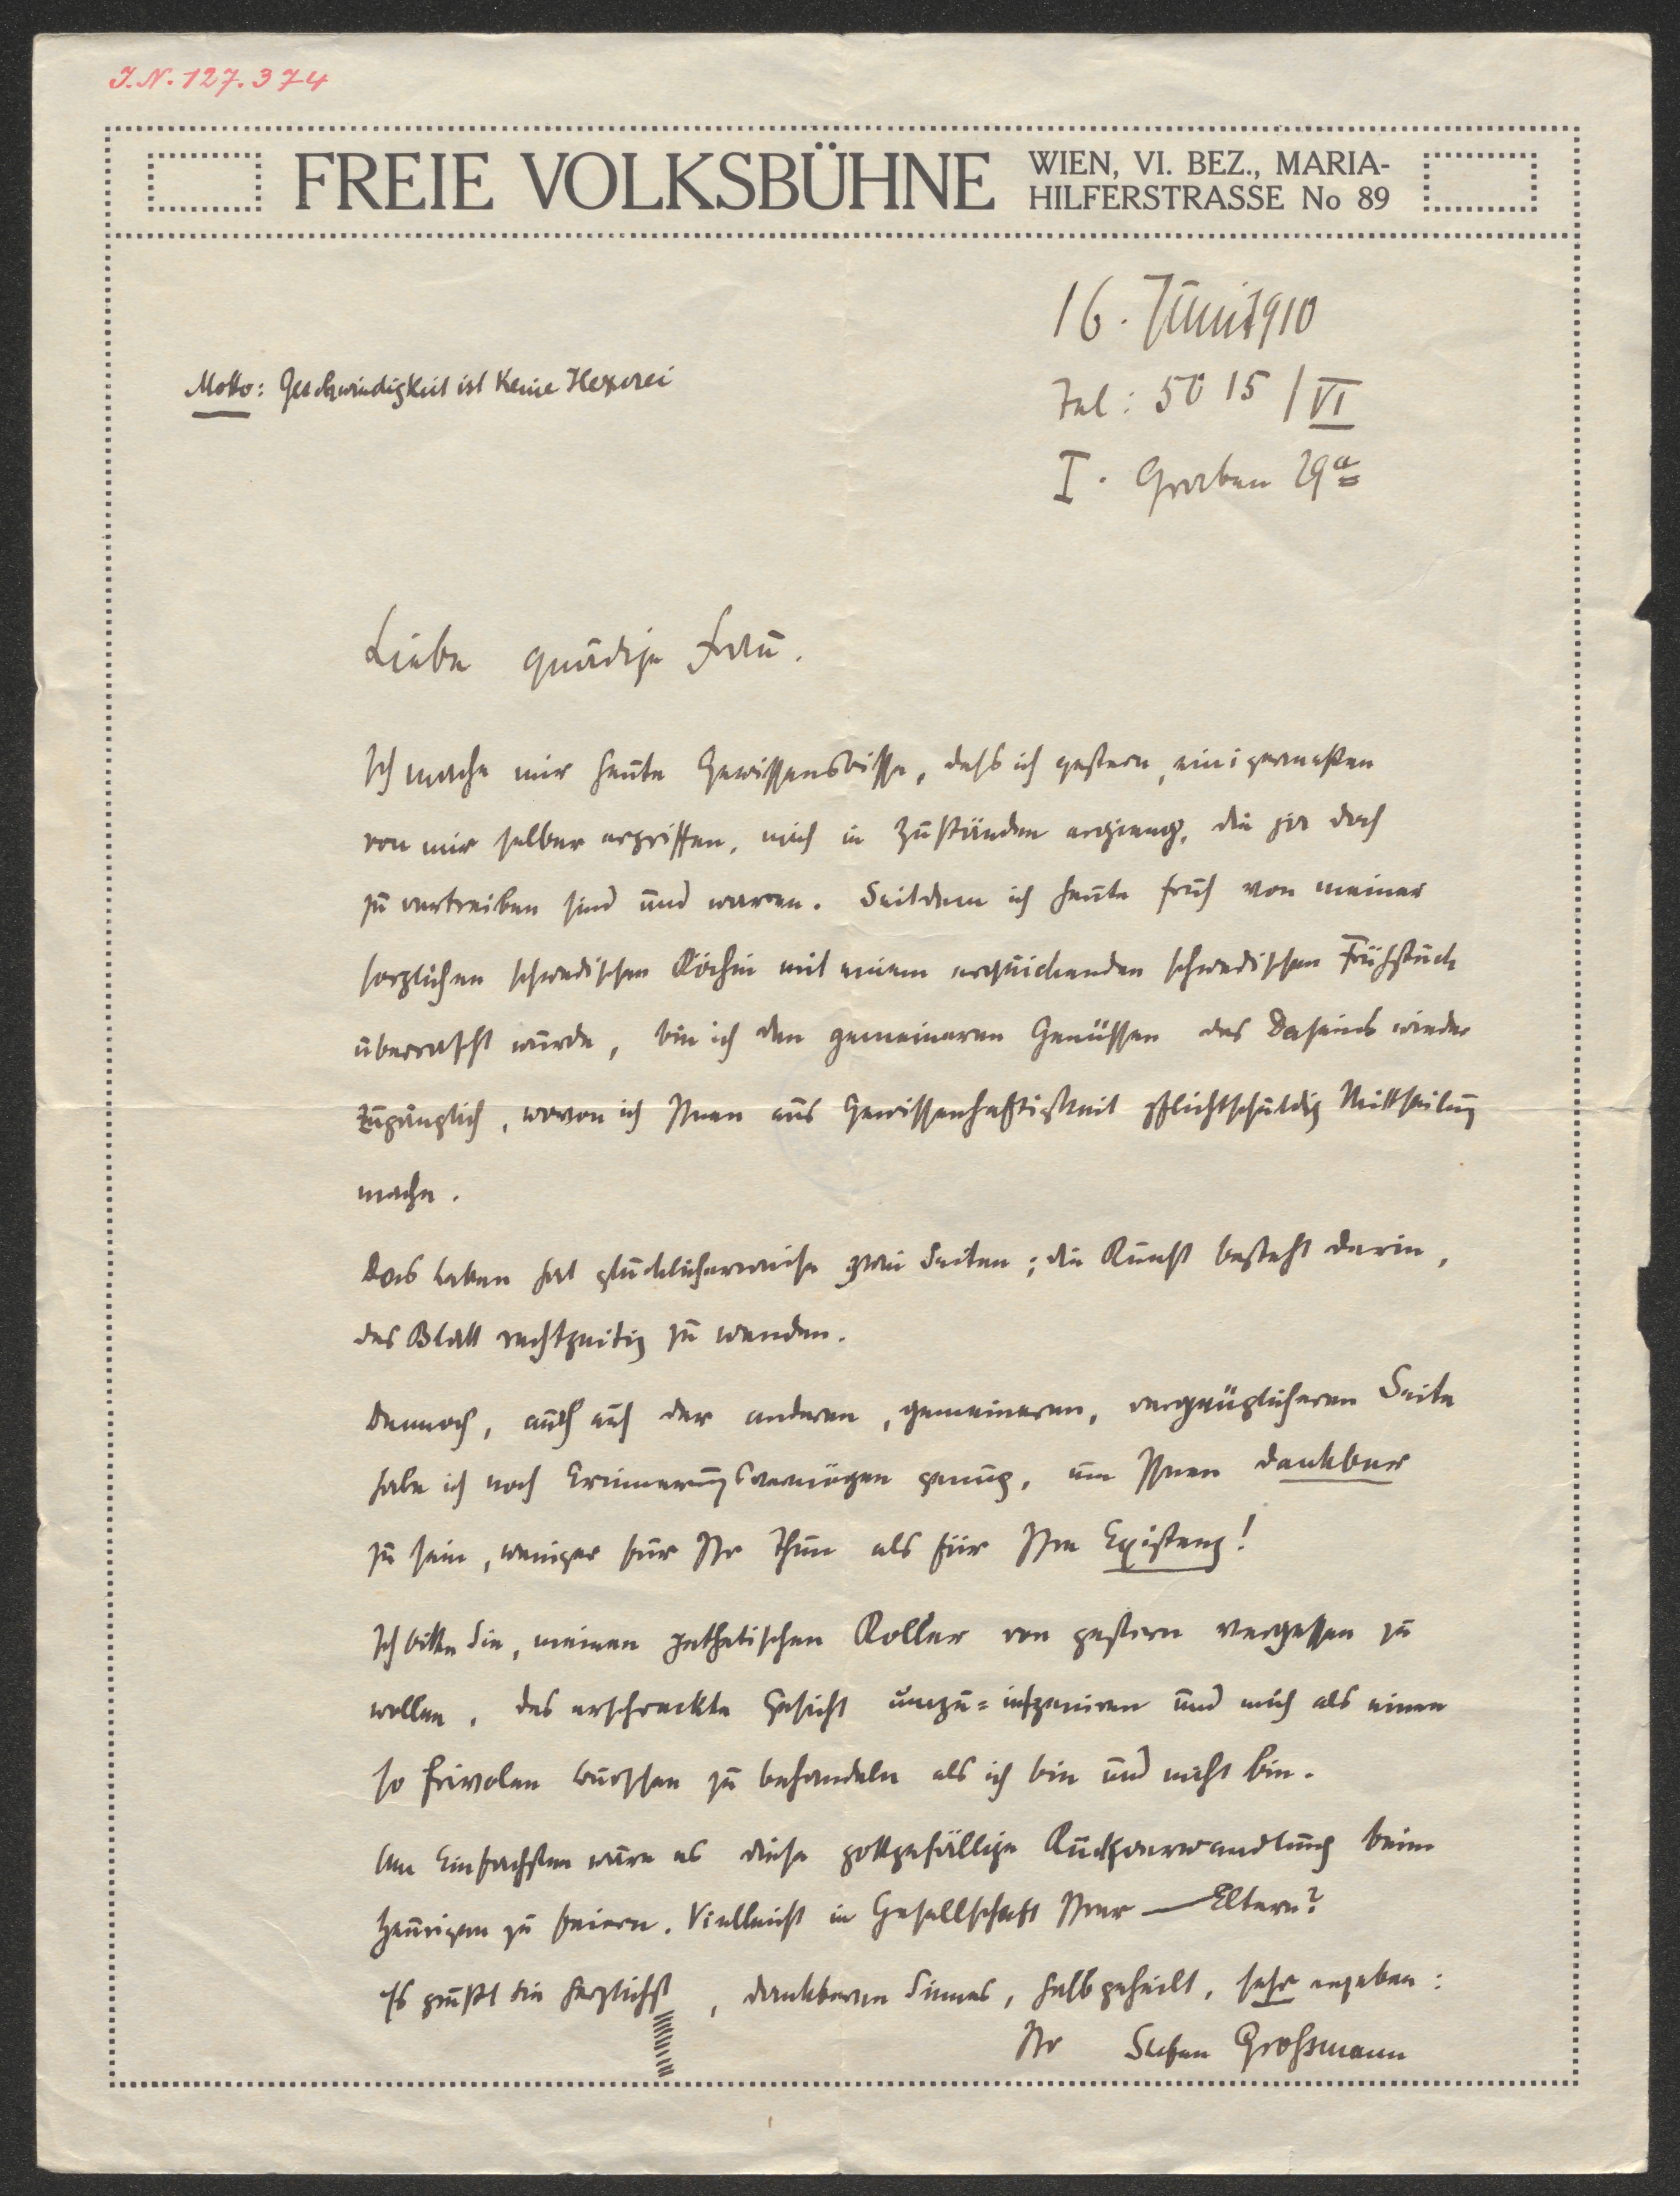 J.N. 127.374
FREIE VOLKSBÜHNE
WIEN, VI. BEZ., MARIA-
HILFERSTRASSE No 89
16. Juni 1910
Motto: Geschwindigkeit ist keine Hexerei
Tel: 5015 / VI
I. Graben 29a
Liebe gnädige Frau.
Ich mache mir heute Gewissensbisse, daß ich gestern, einigermaßen
von mir selber ergriffen, mich in Zuständen ergieng, die ja doch
zu vertreiben sind und waren. Seitdem ich heute früh von meiner
sorglichen schwedischen Köchin mit einem erquickenden schwedischen Frühstück
überrascht wurde, bin ich den gemeineren Genüssen des Daseins wieder
zugänglich, wovon ich Ihnen aus Gewissenhaftigkeit pflichtschuldig Mittheilung
mache.
Das Leben hat glücklicherweise zwei Seiten; die Kunst besteht darin,
das Blatt rechtzeitig zu wenden.
Dennoch, auch auf der anderen, gemeineren, vergnüglicheren Seite
habe ich noch Erinnerungsvermögen genug, um Ihnen dankbar
zu sein, weniger für Ihr Thun als für Ihre Existenz!
Ich bitte Sie, meinen pathetischen Koller von gestern vergessen zu
wollen, das erschreckte Gesicht umzu-inszeniren und mich als einen
so frivolen Burschen zu behandeln als ich bin und nicht bin.
Am Einfachsten wäre es diese gottgefällige Rückverwandlung beim
Heurigen zu feiern. Vielleicht in Gesellschaft Ihrer — Eltern?
Es grüßt Sie herzlichst, dankbaren Sinnes, halb geheilt, sehr ergeben:
Ihr Stefan Großmann